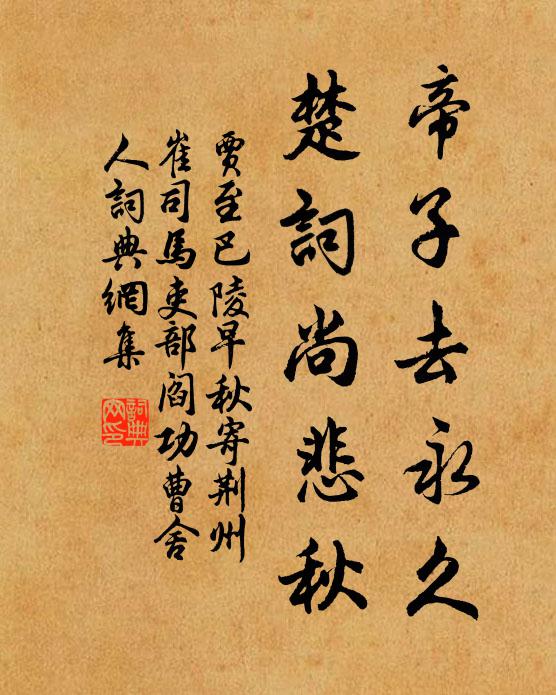 帝子去永久
楚詞尚悲秋
賈至巴陵早秋寄荆州
崔司馬吏部閻功曹舍
人詞典網集
詞典
网印